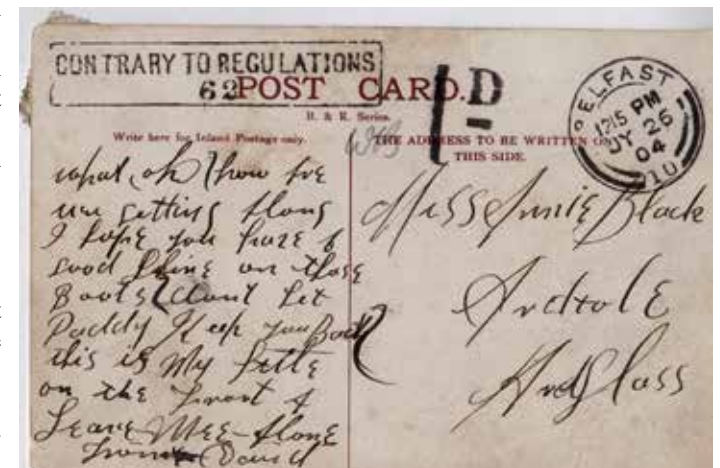 CONTRARY TO REGULATIONS
62
POST CARD.
1D
B. & R. Series.
Write here for Inland Postage only.
THE ADDRESS TO BE WRITTEN ON
THIS SIDE.
BELFAST
1215 PM
JY 26
04
what oh how are
you getting along
I hope you have a
good shine on those
Boots dont let
Paddy Keep you Back
this is My
on the front of
Leave Mee alone
from David
Miss Annie Black
Ardtole
Ardglass